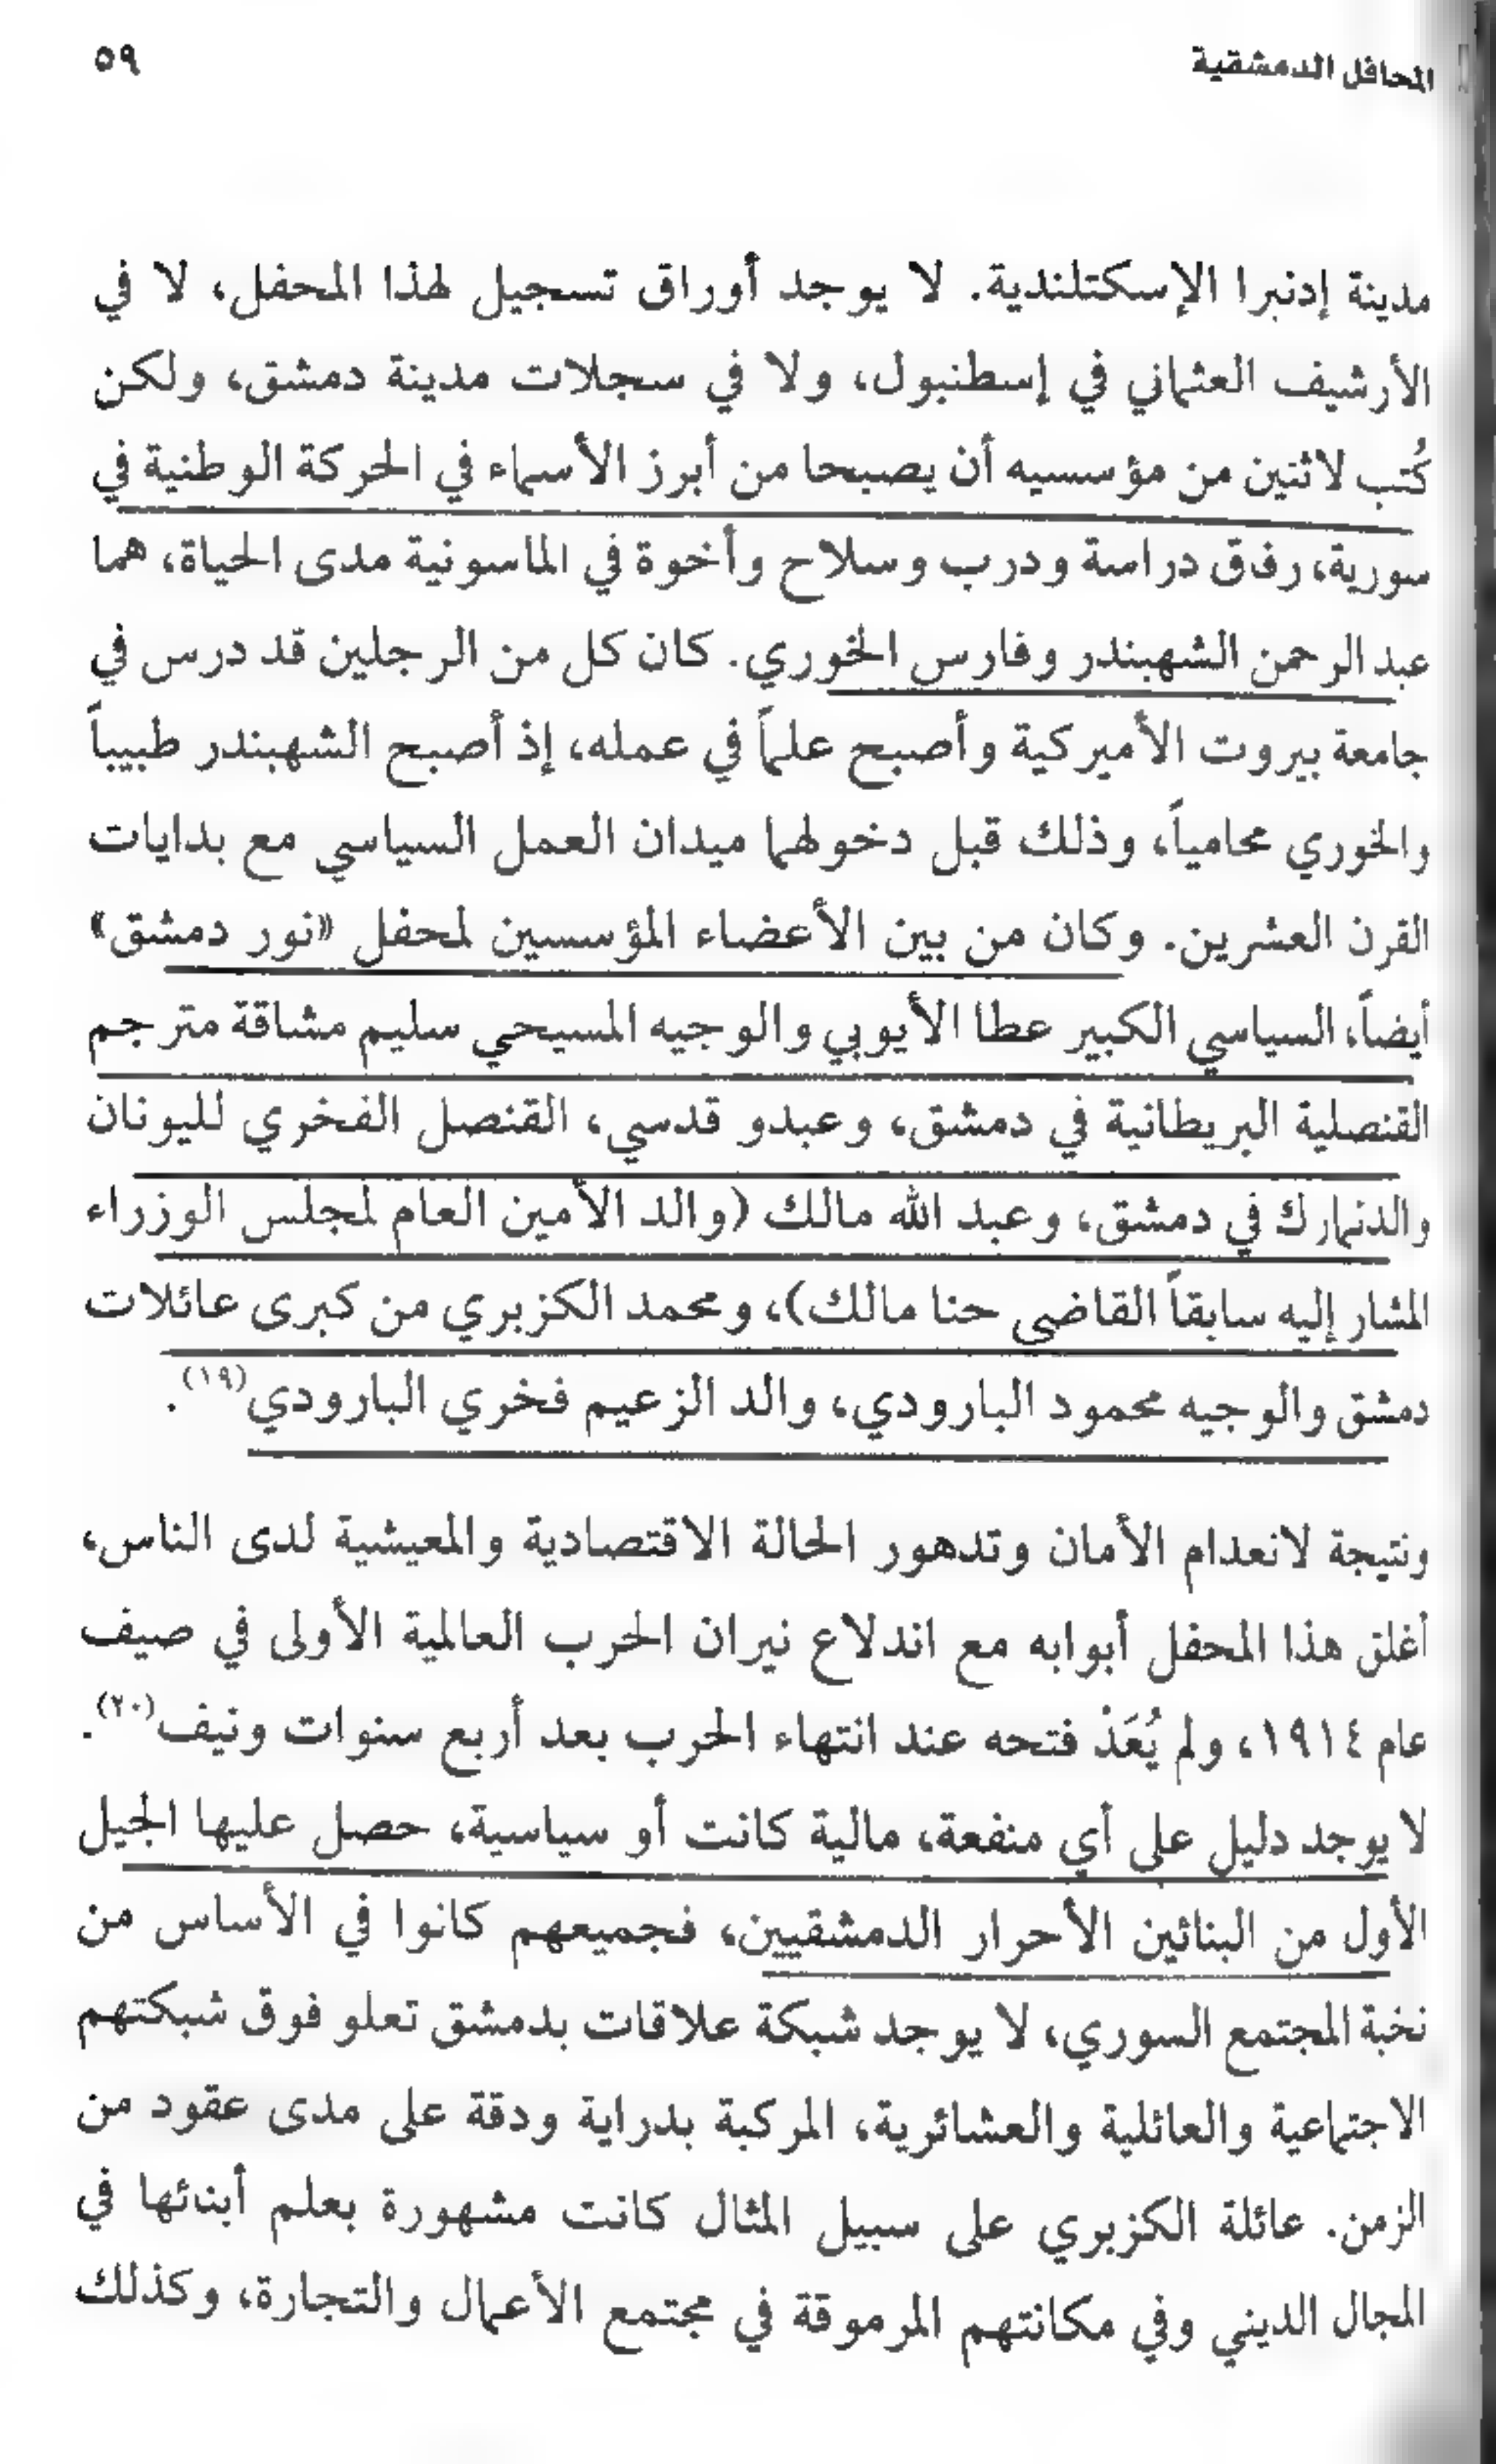 المحافل الدمشقية
٥٩
مدينة إدنبرا الإسكتلندية. لا يوجد أوراق تسجيل لهذا المحفل، لا في
الأرشيف العثماني في إسطنبول، ولا في سجلات مدينة دمشق، ولكن
كُتب لاثنين من مؤسسيه أن يصبحا من أبرز الأسماء في الحركة الوطنية في
سورية، رفاق دراسة ودرب وسلاح وأخوة في الماسونية مدى الحياة، هما
عبد الرحمن الشهبندر وفارس الخوري. كان كل من الرجلين قد درس في
جامعة بيروت الأميركية وأصبح علماً في عمله، إذ أصبح الشهبندر طبيباً
والخوري محامياً، وذلك قبل دخولهما ميدان العمل السياسي مع بدايات
القرن العشرين. وكان من بين الأعضاء المؤسسين لمحفل «نور دمشق»
أيضاً، السياسي الكبير عطا الأيوبي والوجيه المسيحي سليم مشاقة مترجم
القنصلية البريطانية في دمشق، وعبدو قدسي، القنصل الفخري لليونان
والدنمارك في دمشق، وعبد الله مالك (والد الأمين العام لمجلس الوزراء
المشار إليه سابقاً القاضي حنا مالك)، ومحمد الكزبري من كبرى عائلات
دمشق والوجيه محمود البارودي، والد الزعيم فخري البارودي(١٩).
ونتيجة لانعدام الأمان وتدهور الحالة الاقتصادية والمعيشية لدى الناس،
أغلق هذا المحفل أبوابه مع اندلاع نيران الحرب العالمية الأولى في صيف
عام ١٩١٤، ولم يُعَدْ فتحه عند انتهاء الحرب بعد أربع سنوات ونيف(٢٠).
لا يوجد دليل على أي منفعة، مالية كانت أو سياسية، حصل عليها الجيل
الأول من البنائين الأحرار الدمشقيين، فجميعهم كانوا في الأساس من
نخبة المجتمع السوري، لا يوجد شبكة علاقات بدمشق تعلو فوق شبكتهم
الاجتماعية والعائلية والعشائرية، المركبة بدراية ودقة على مدى عقود من
الزمن. عائلة الكزبري على سبيل المثال كانت مشهورة بعلم أبنائها في
المجال الديني وفي مكانتهم المرموقة في مجتمع الأعمال والتجارة، وكذلك